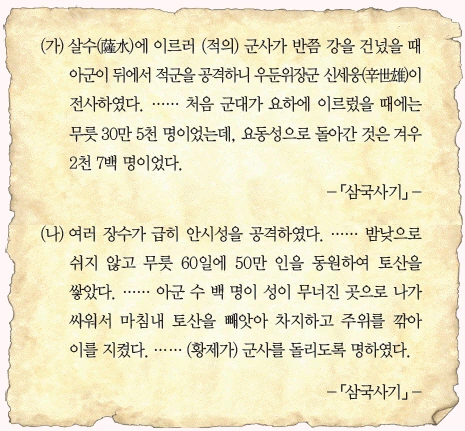 (가) 살수(薩水)에 이르러 (적의) 군사가 반쯤 강을 건넜을 때
아군이 뒤에서 적군을 공격하니 우둔위장군 신세웅(辛世雄)이
전사하였다. …… 처음 군대가 요하에 이르렀을 때에는
무릇 30만 5천 명이었는데, 요동성으로 돌아간 것은 겨우
2천 7백 명이었다.
－「삼국사기」－
(나) 여러 장수가 급히 안시성을 공격하였다. …… 밤낮으로
쉬지 않고 무릇 60일에 50만 인을 동원하여 토산을
쌓았다. …… 아군 수 백 명이 성이 무너진 곳으로 나가
싸워서 마침내 토산을 빼앗아 차지하고 주위를 깎아
이를 지켰다. …… (황제가) 군사를 돌리도록 명하였다.
－「삼국사기」－